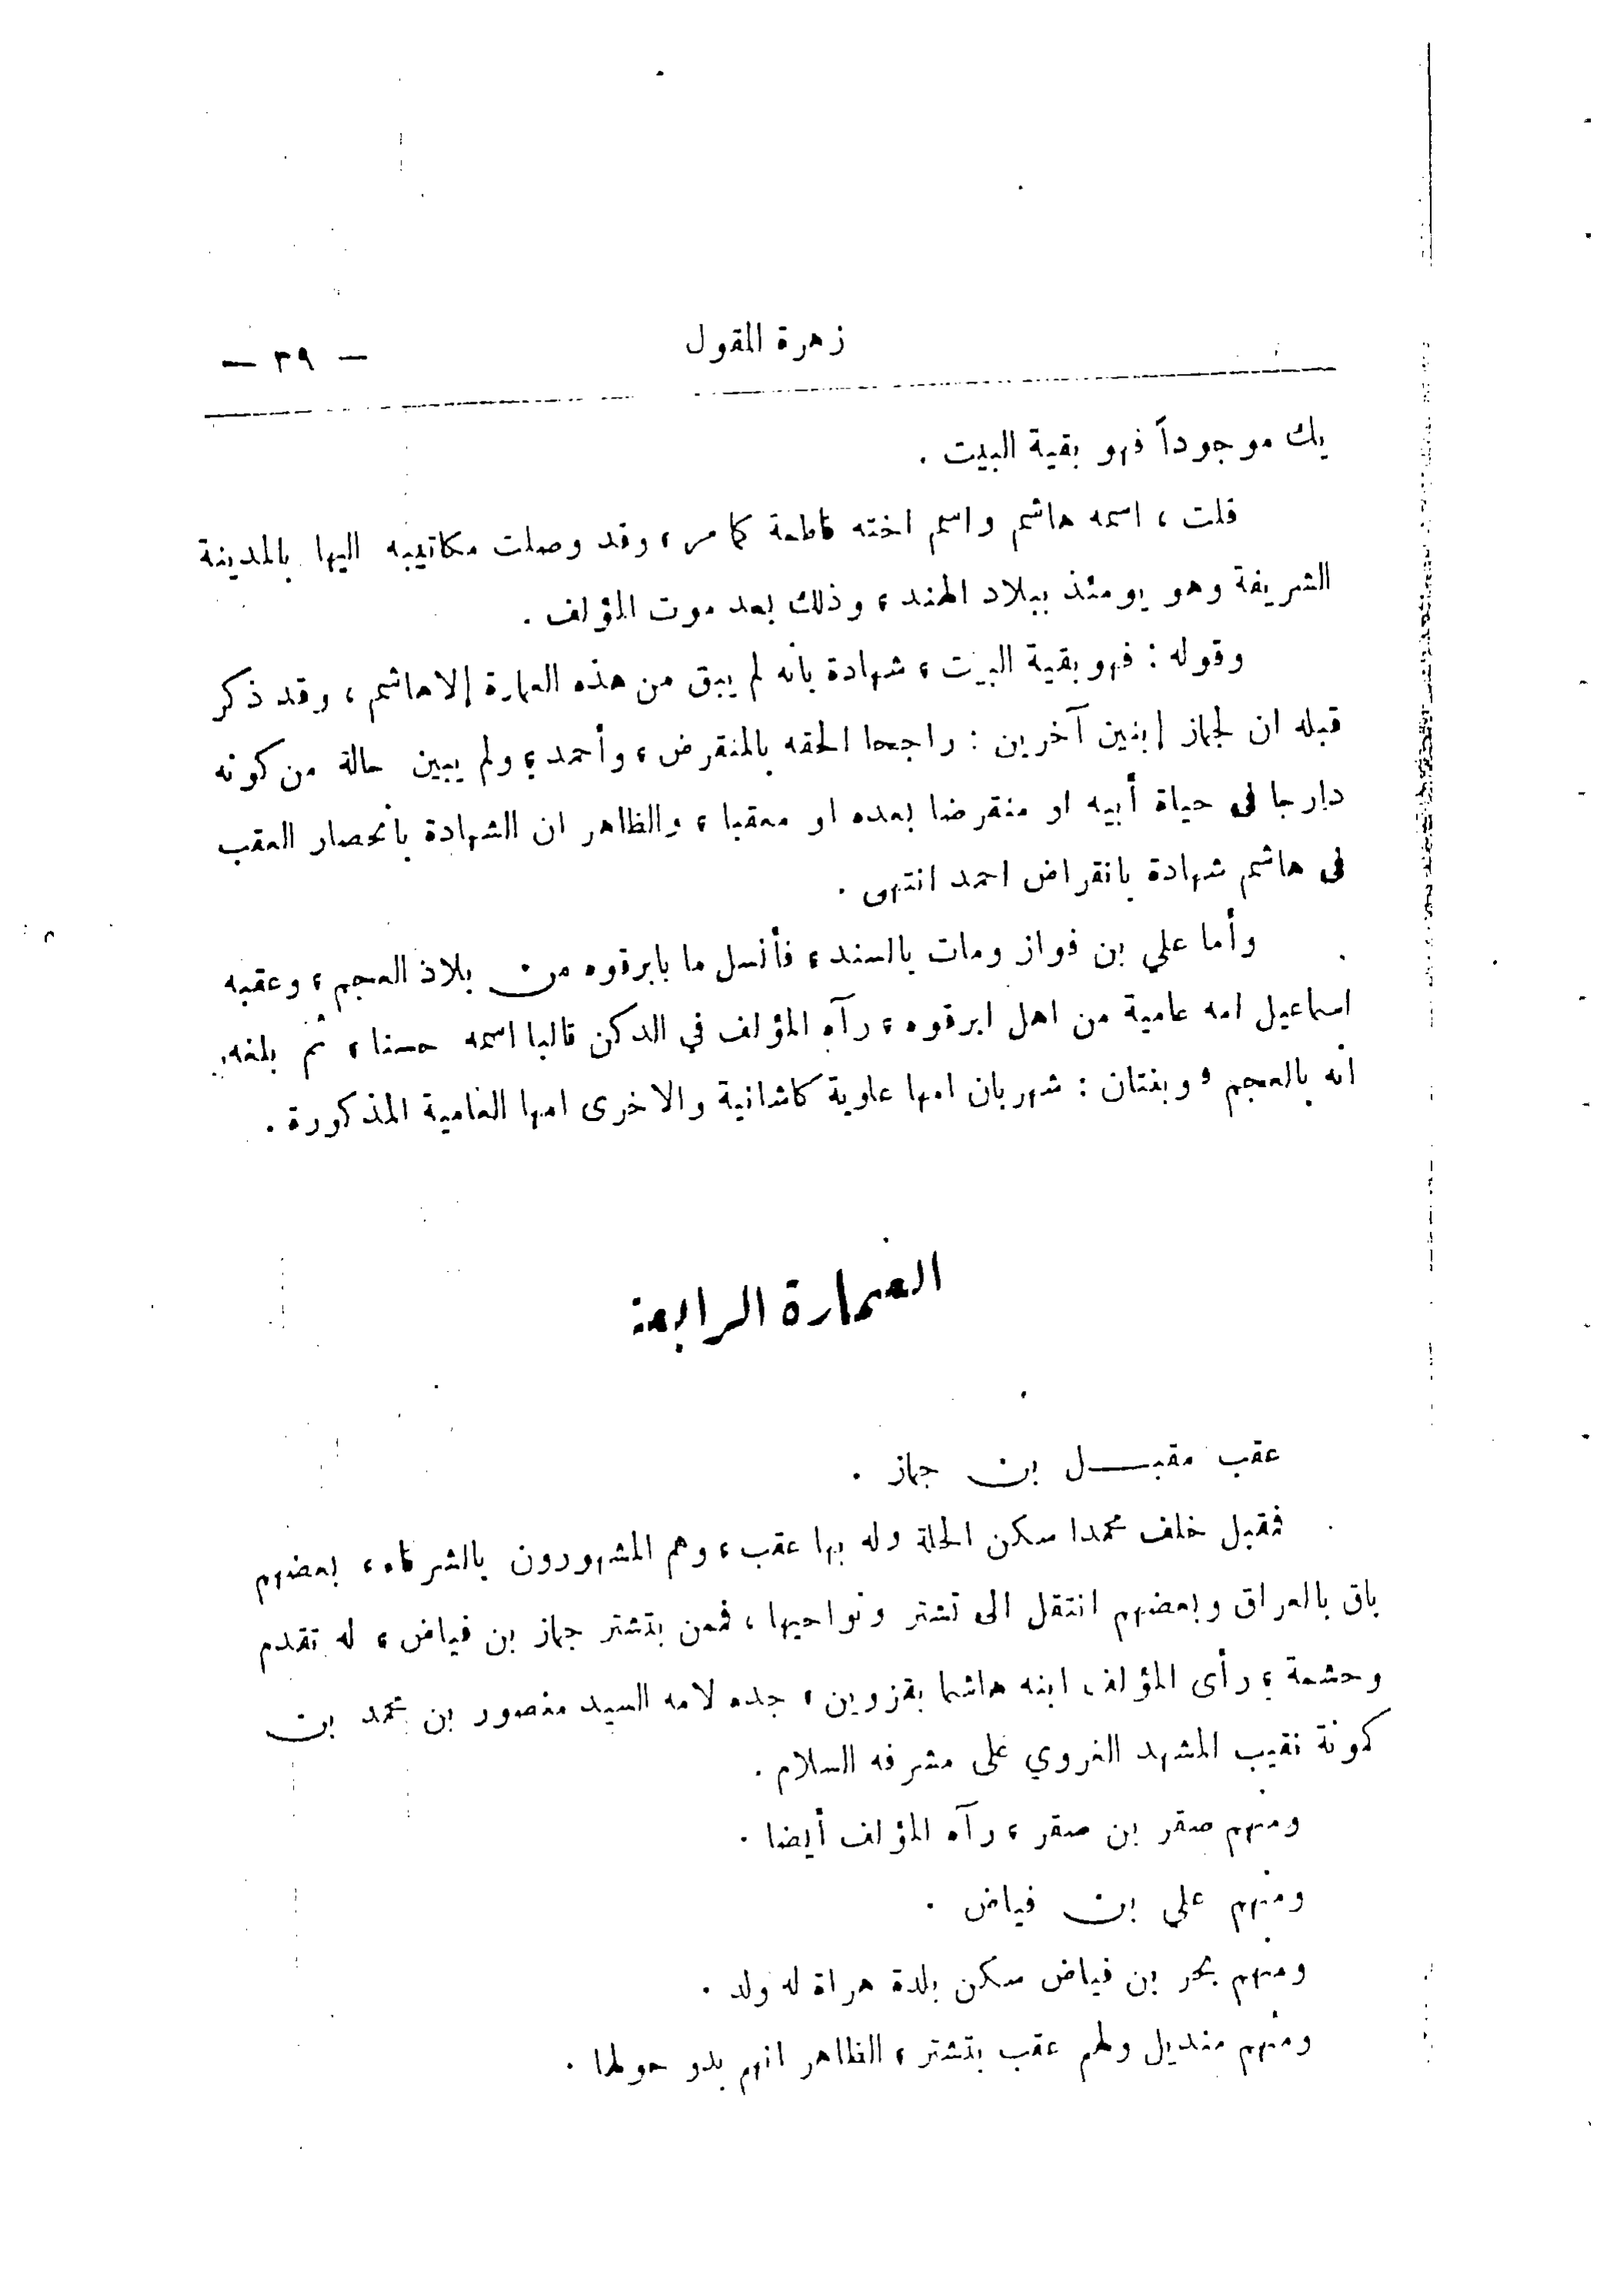 زهرة المقول
— ٣٩ —
يك موجوداً فهو بقية البيت .
قلت ، اسمه هاشم واسم اخته فاطمة كما مر ، وقد وصلت مكاتيبه اليها بالمدينة
الشريفة وهو يومئذ ببلاد الهند ، وذلك بعد موت المؤلف .
وقوله : فهو بقية البيت ، شهادة بأنه لم يبق من هذه العمارة إلا هاشم ، وقد ذكر
قبله ان لجماز إبنين آخرين : راجحا الحقه بالمنقرض ، وأحمد ، ولم يبين حالة من كونه
دارجا فى حياة أبيه او منقرضا بعده او معقبا ، والظاهر ان الشهادة بانحصار العقب
فى هاشم شهادة بانقراض احمد انتهى .
وأما علي بن فواز ومات بالسند ، فأنسل ما بابرقوه من بلاد العجم ، وعقبه
اسماعيل امه عامية من اهل ابرقوه ، رآه المؤلف في الدكن قالبا اسمه حسنا ، ثم بلغه
انه بالعجم ، وبنتان : شهربان امها علوية كاشانية والاخرى امها العامية المذكورة .
العمارة الرابعة
عقب مقبل بن جماز .
فمقبل خلف محمدا سكن الحلة وله بها عقب ، وهم المشهورون بالشرفاء ، بعضهم
باق بالعراق وبعضهم انتقل الى تشتر ونواحيها ، فمن بتشتر جماز بن فياض ، له تقدم
وحشمة ، رأى المؤلف ابنه هاشما بقزوين ، جده لامه السيد منصور بن محمد بن
كمونة نقيب المشهد الغروي على مشرفه السلام .
ومنهم صقر بن صقر ، رآه المؤلف أيضا .
ومنهم علي بن فياض .
ومنهم بحر بن فياض سكن بلدة هراة له ولد .
ومنهم منديل ولهم عقب بتشتر ، الظاهر انهم بدو حولها .